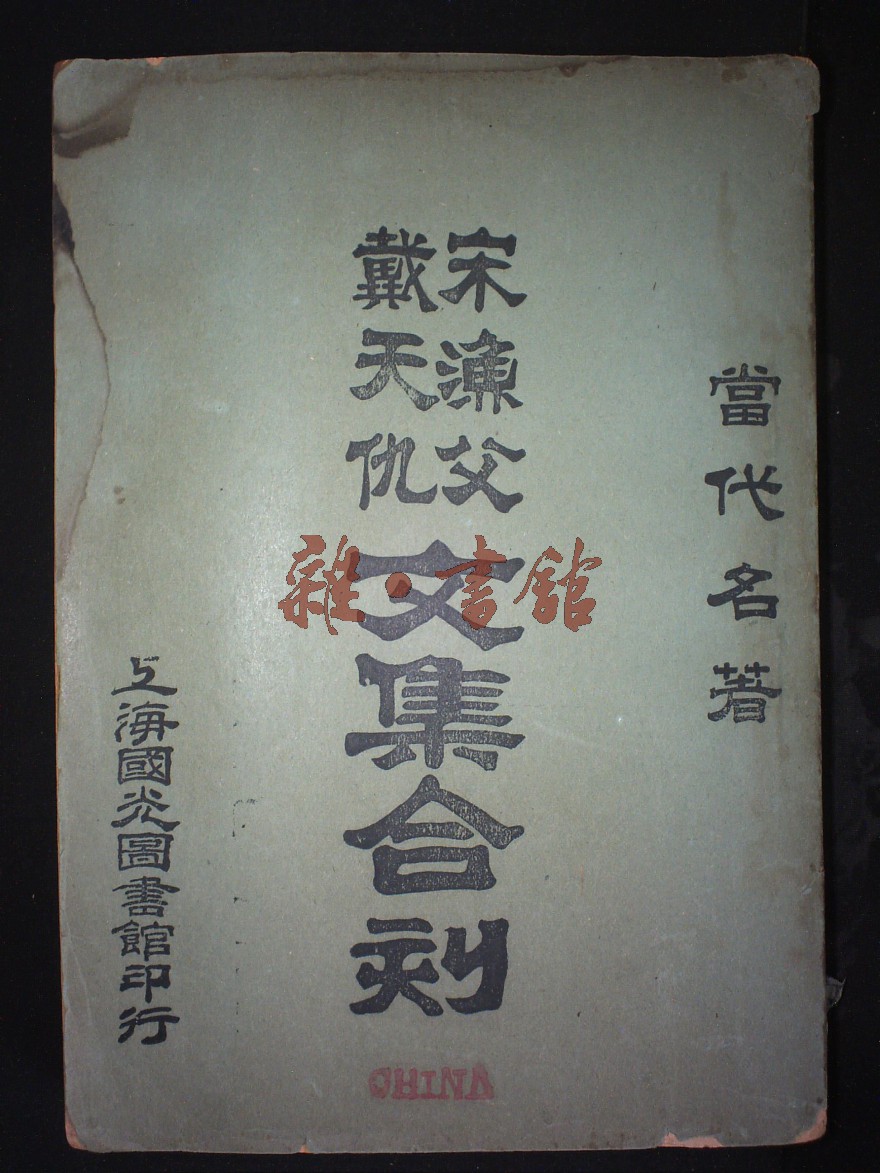 當代名著
宋漁父
戴天仇
文集合刻
上海國光圖書館印行
雜·書館
CHINA